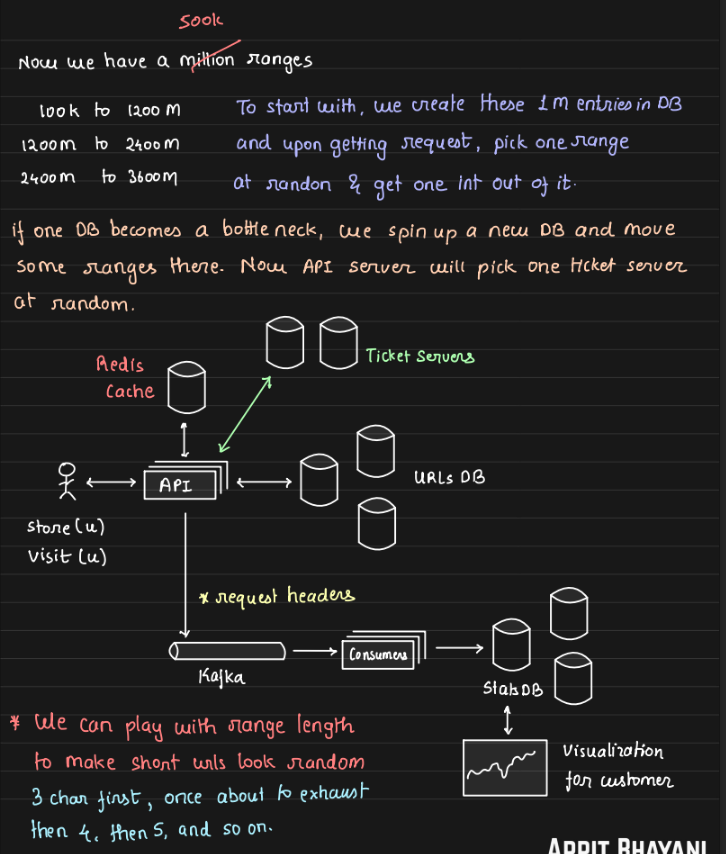 500k
Now we have a million ranges
100k to 1200M
1200m to 2400m
2400m to 3600m
To start with, we create these 1m entries in DB
and upon getting request, pick one range
at randon & get one int out of it.
if one DB becomes a bottle neck, we spin up a new DB and move
some ranges there. Now API server will pick one ticket server
at random.
Redis
Cache
Ticket Servers
API
URLs DB
store(u)
visit(u)
* request headers
Kafka
Consumers
StatsDB
* We can play with range length
to make short urls look random
3 char first, once about to exhaust
then 4, then 5, and so on.
Visualization
for customer
ARPIT BHAYANI